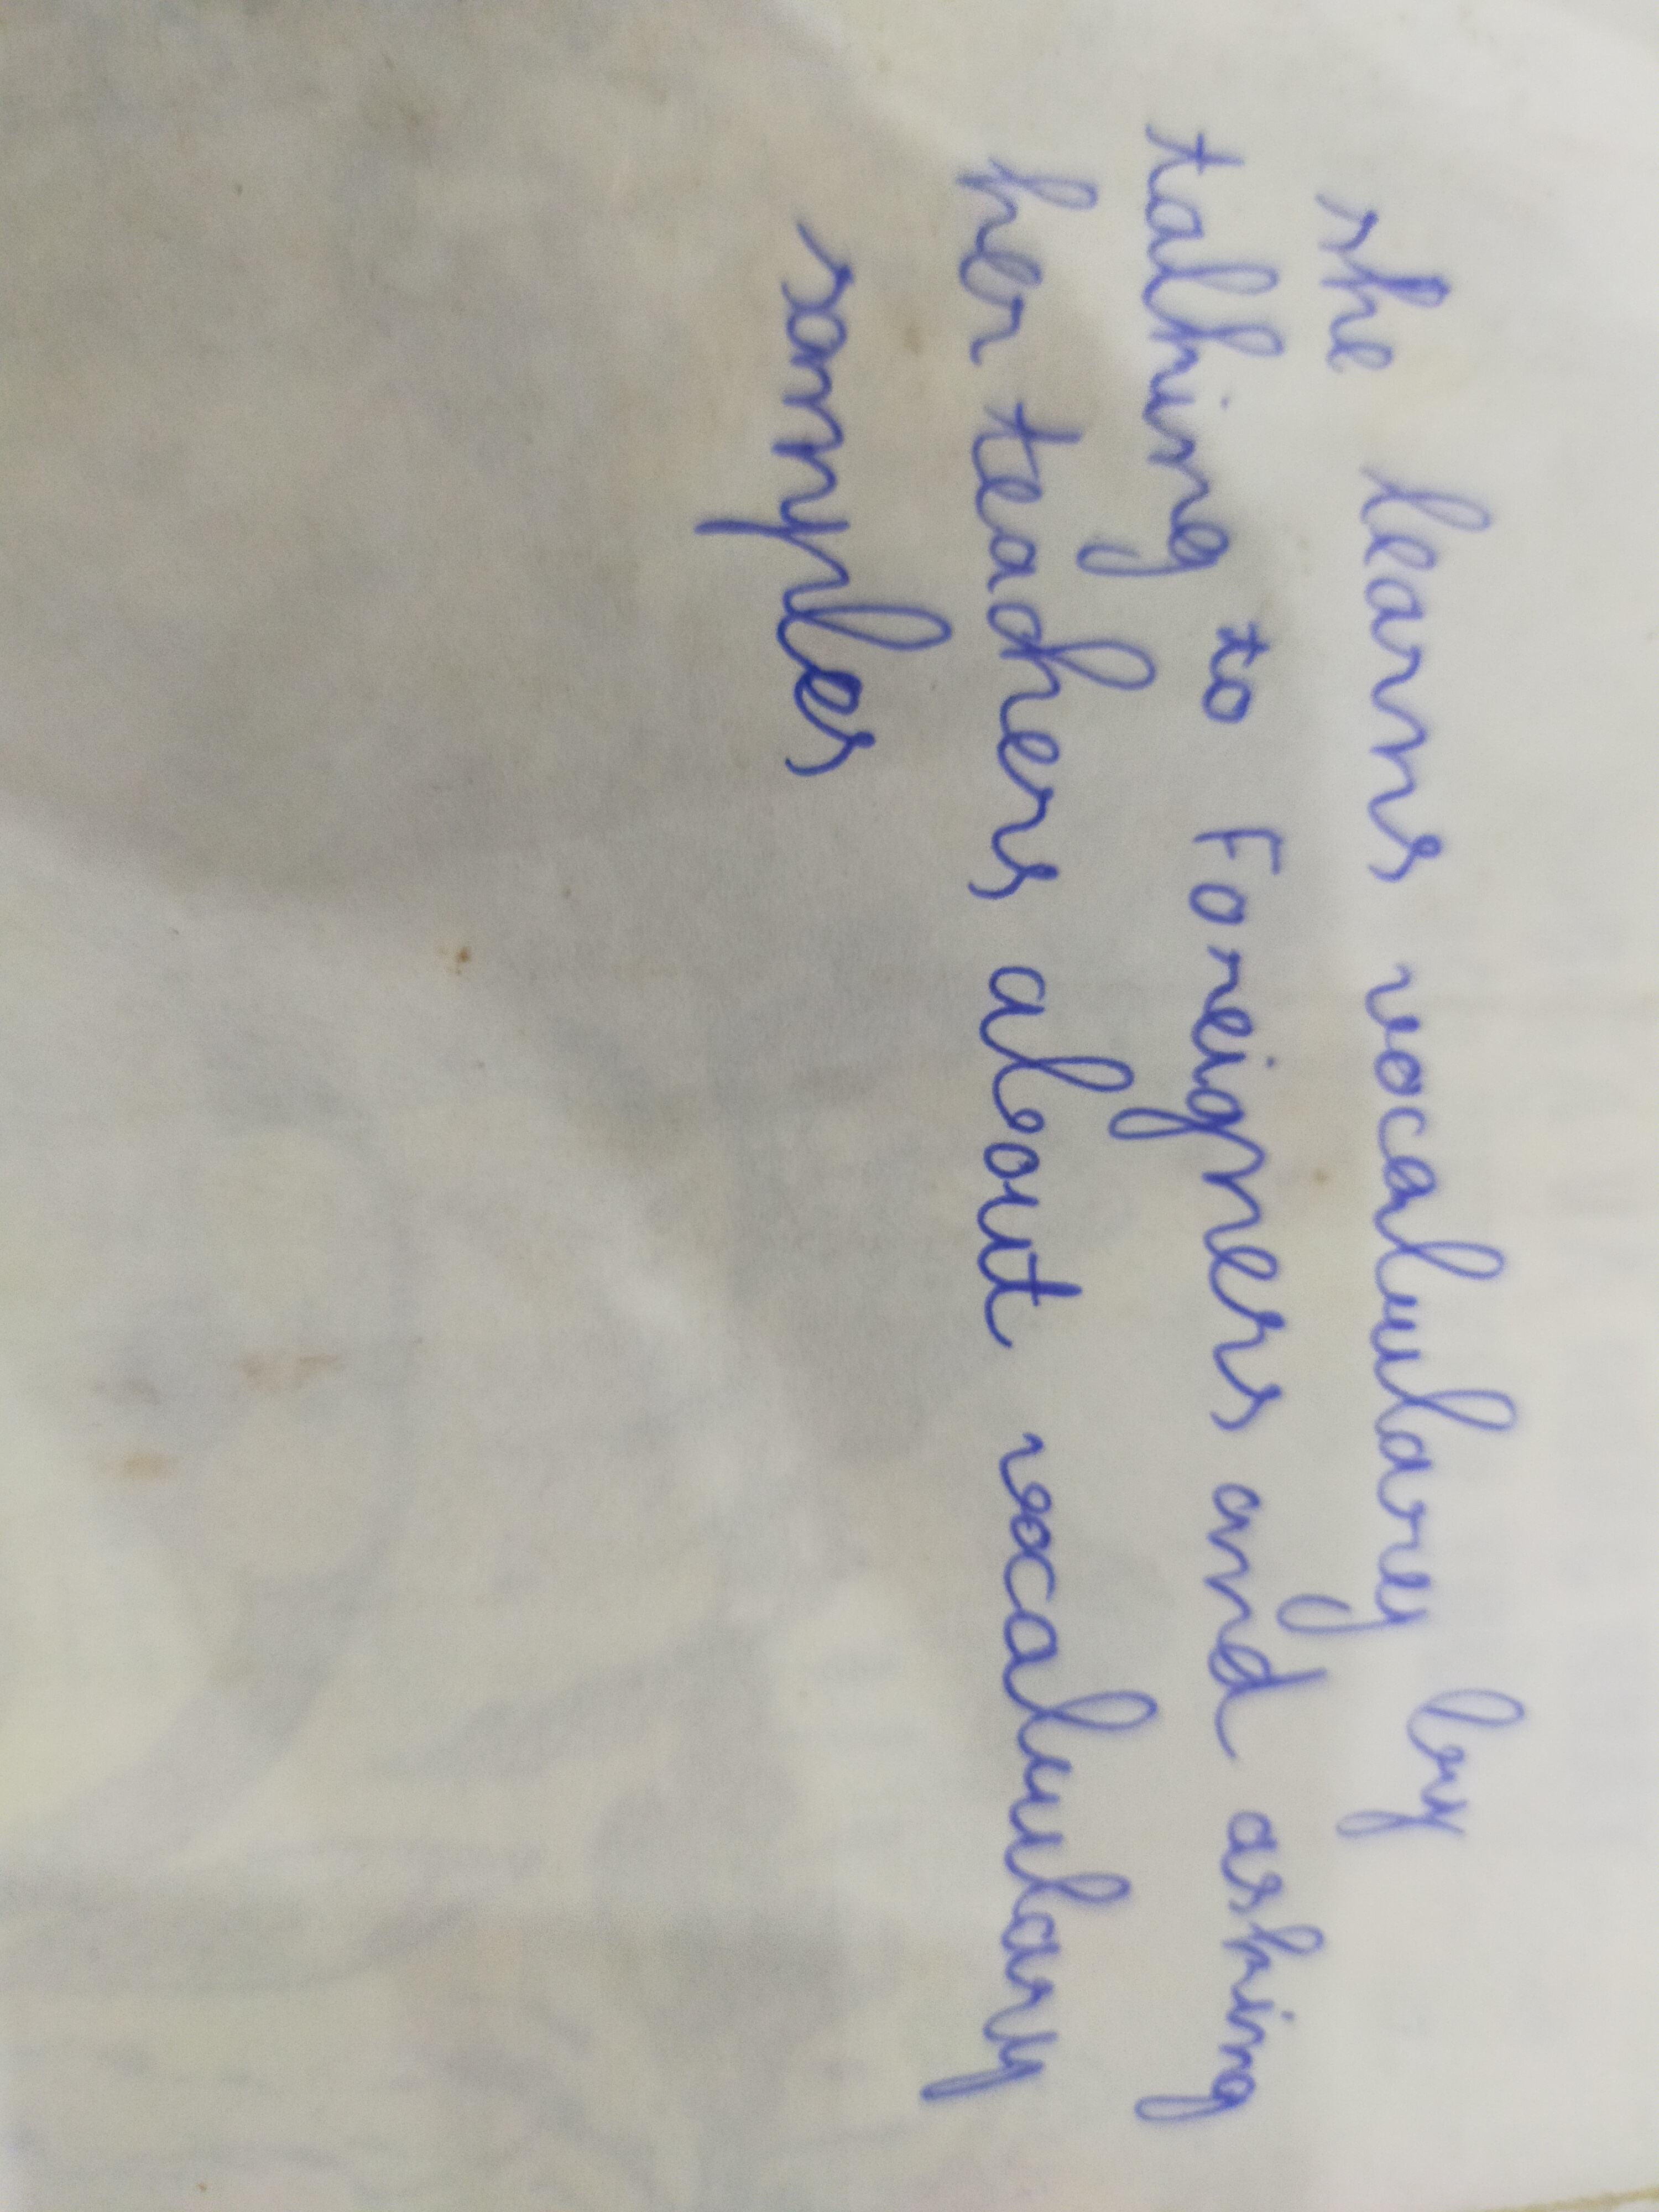 she learns vocabularey by
talking to Foreigners and asking
her teachers about vocabulary
samples